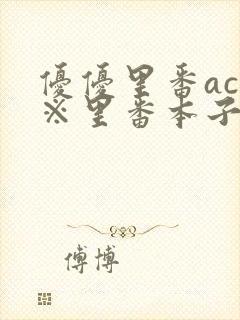 優優里番ac
※里番本子
傅博